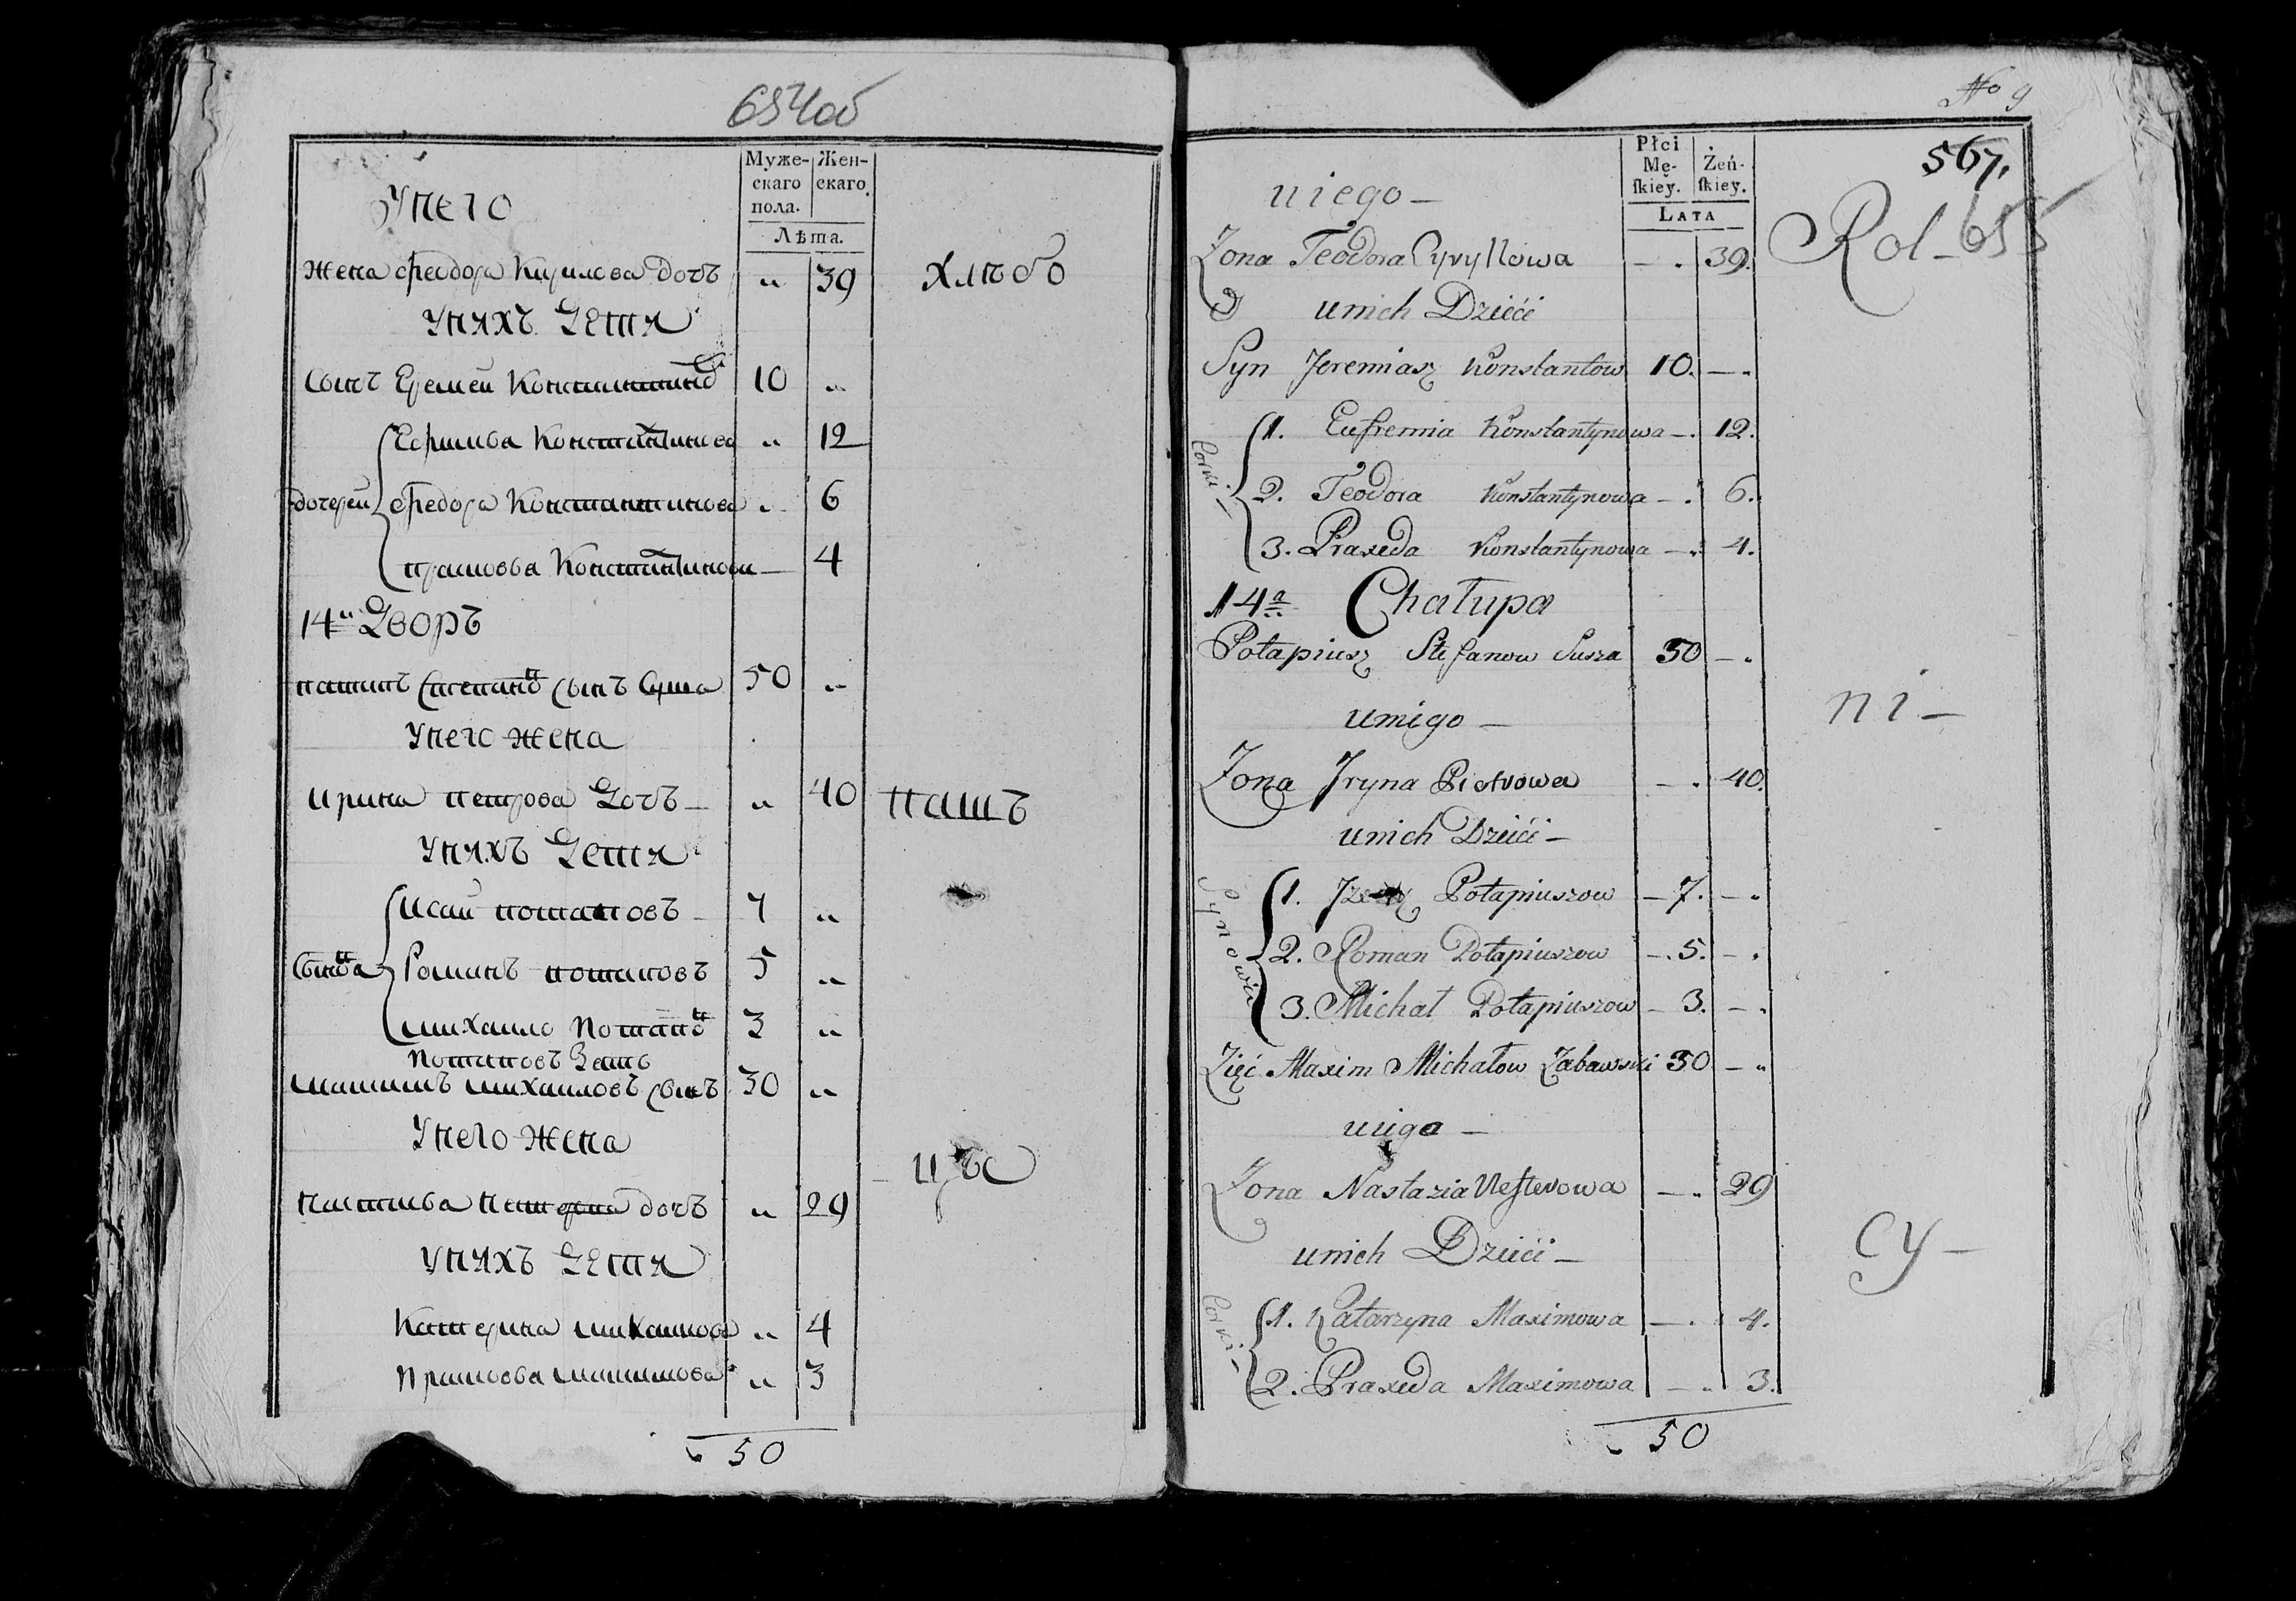 654об
Муже-
скаго
пола.
Жен-
скаго.
Лѣта.
У него
Жена Феодора Кирилова дочъ " 39
Хлѣбо
У нихъ Дети
Сынъ Еремей Константинов 10 "
Ефимва Константинова " 12
дочерей Федора Константинова " 6
Прасковья Константинова — 4
14й Дворъ
Потапъ Степановъ Сынъ Суша 50 "
У него жена
Ирина Петрова Дочъ — " 40
пашъ
У нихъ Дети
Исай Потаповъ — 7 "
Сынова Романъ Потаповъ 5 "
Михайло Потаповъ 3 "
Потаповъ Зять
Максимъ Михайловъ Сынъ 30 "
У него жена
цы
Дочъ " 29
У нихъ Дети
Катерина " 4
Прасковья Максимова " 3
50
No 9
567.
Rol - 655
Płci
Mę-
ſkiey.
Żeń-
ſkiey.
Lata
niego —
Żona Teodora Cyryllowa — . 39.
u nich Dzieći
Syn Jeremiasz Konstantow 10. — .
Corki —
1. Eufremia Konstantynowa — . 12.
2. Teodora Konstantynowa — . 6.
3. Praxeda Konstantynowa — . 4.
14a Chałupa
Potapiusz Stefanow Susza 50 — .
ni —
u niego —
Żona Jryna Piotrowa — . 40.
u nich Dzieći —
Synowie
1. Potapiuszow — 7. — .
2. Roman Potapiuszow — . 5. — .
3. Michał Potapiuszow — 3. — .
Zięć Maxim Michałow Zabawski 30 — .
u niego —
Żona Nastazia Nesterowa — . 29
u nich Dzieći —
cy —
Corki —
1. Katarzyna Maximowa — . 4.
2. Praxeda Maximowa — . 3.
50